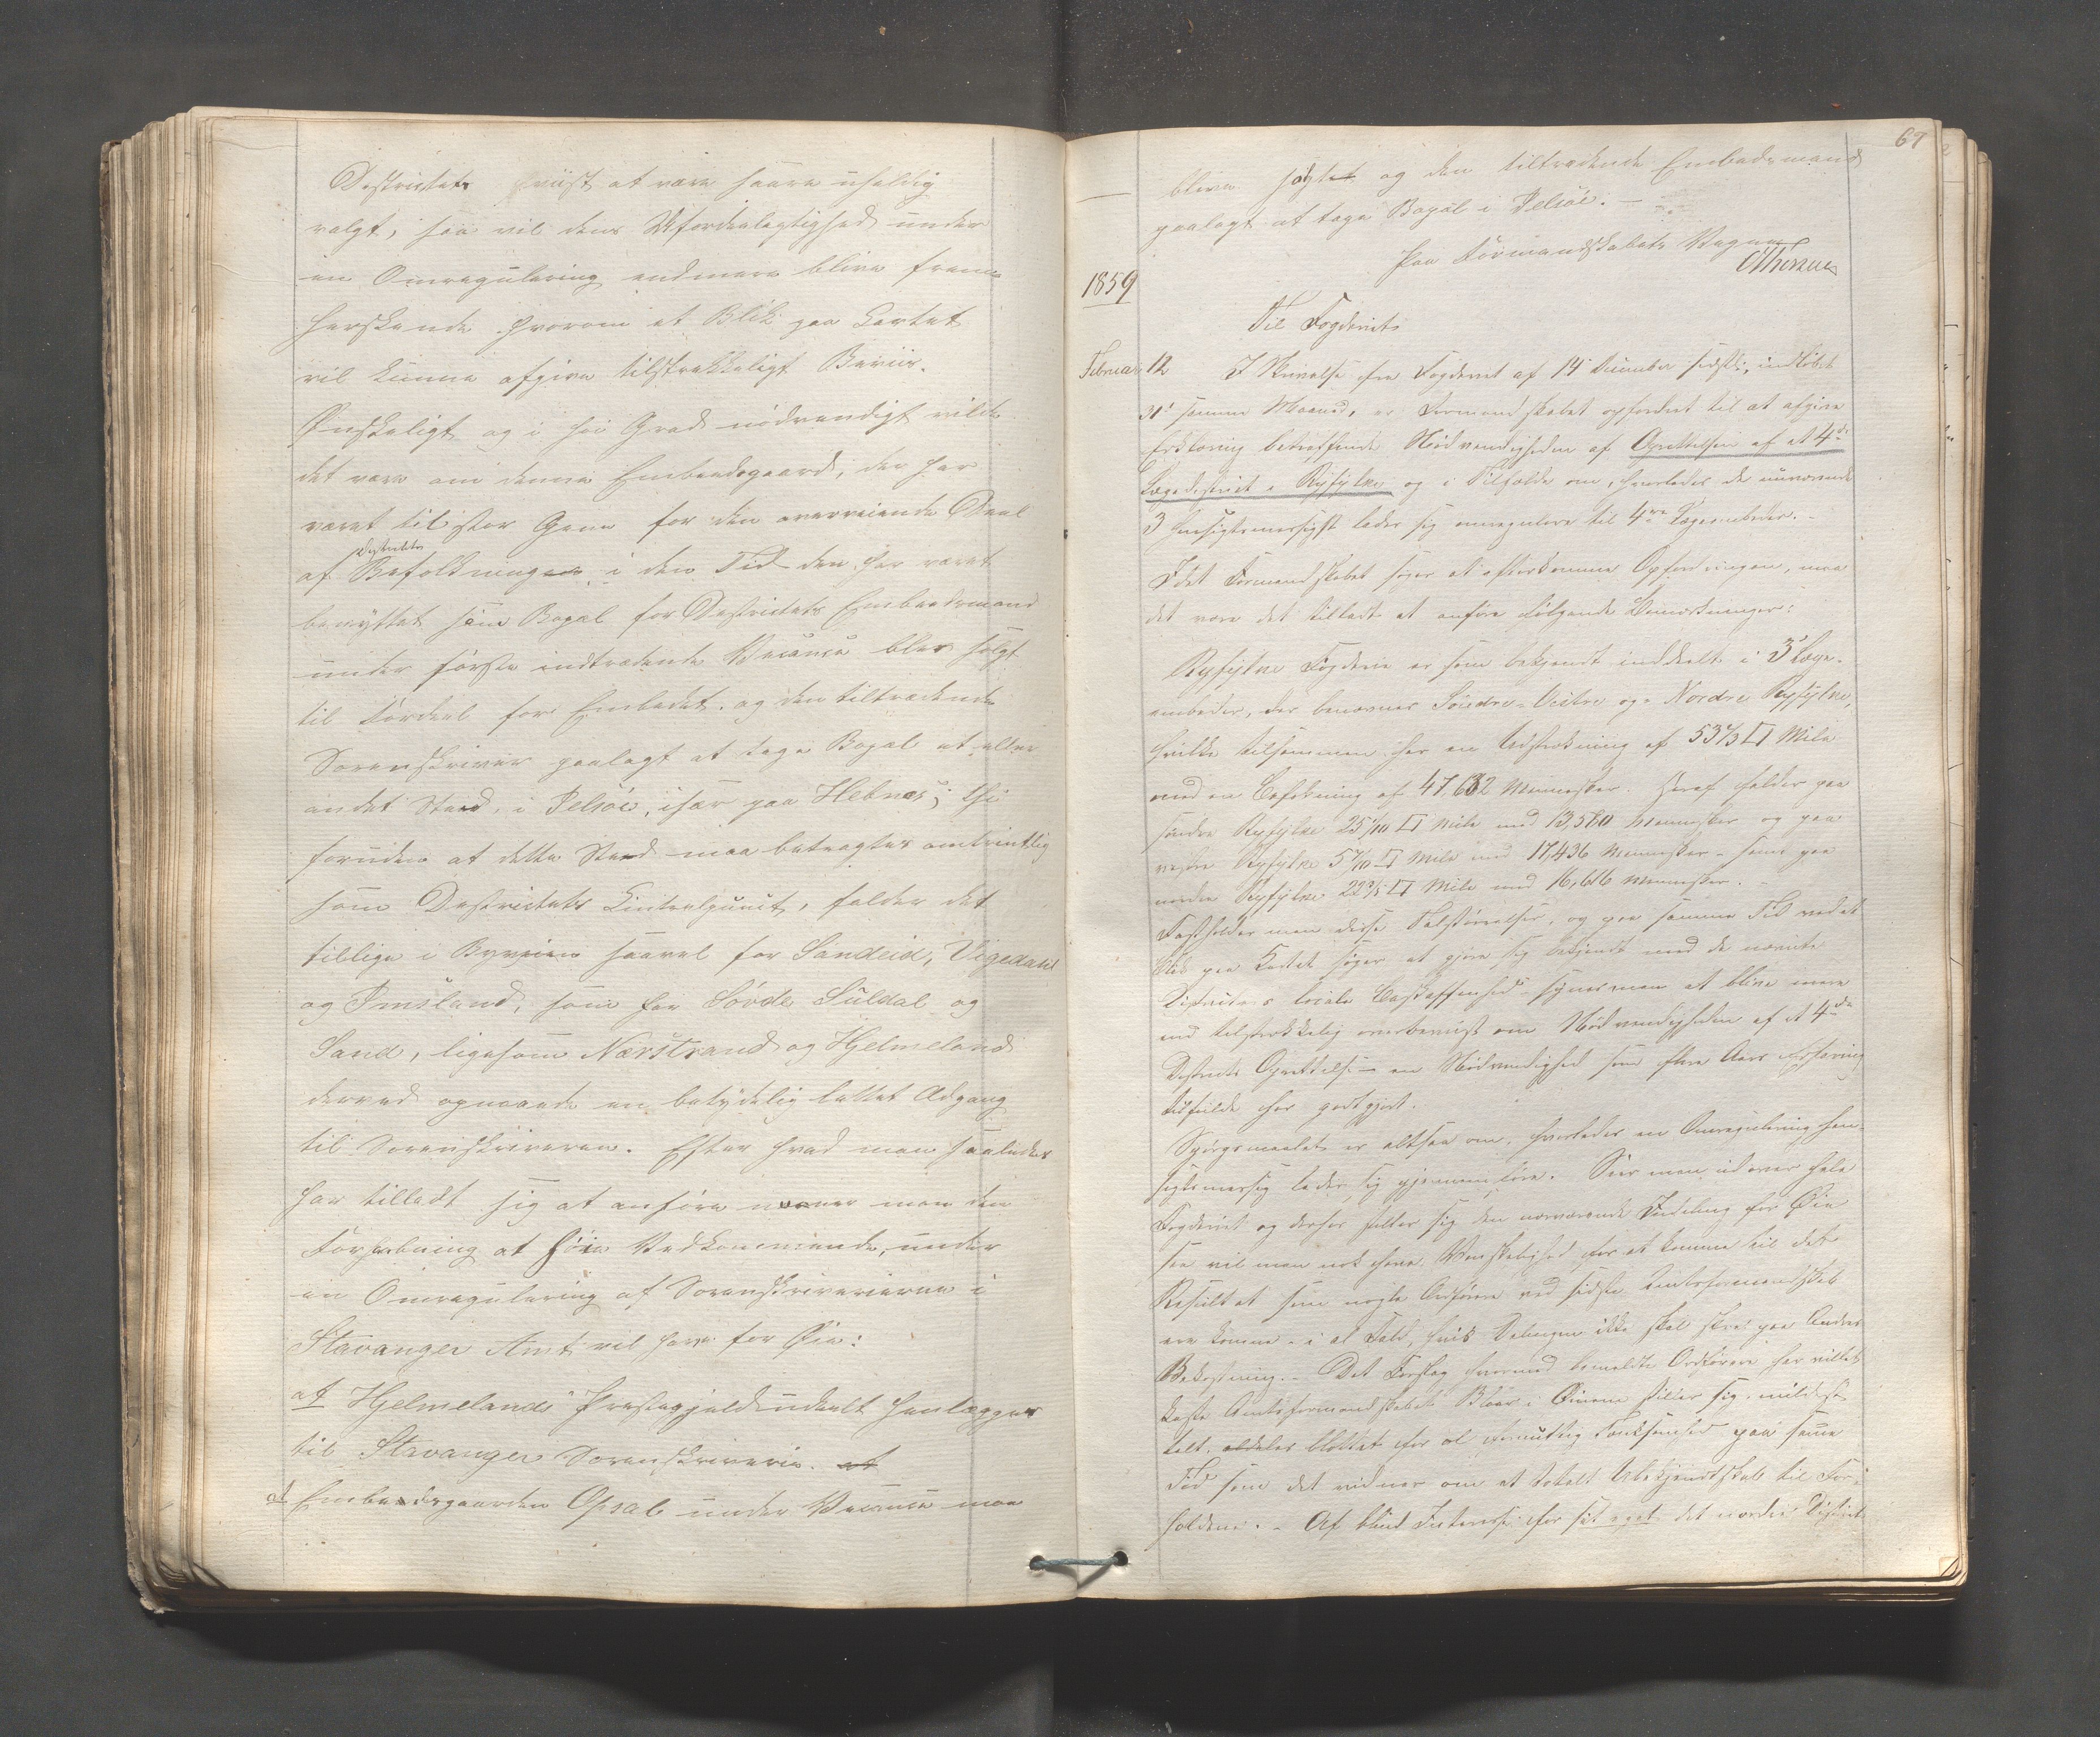 Districtets viist at være saare uheldig
valgt, saa vil dens Ufordeelagtighed under
en Omregulering endmere blive frem-
herskende hvorom et Blik paa Cartet
vil kunne afgive tilstrækkeligt Beviis.
Ønskeligt og i høi Grad nødvendigt vilde
det være om denne Embedsgaard, der har
været til stor Gene for den overveiende Deel
af Districtets Befolkningen i den Tid den har været
benyttet som Bopæl for Districtets Embedsmand
under første indtrædende Vacance blev solgt
til Fordeel for Embedet og den tiltrædende
Sorenskriver paalagt at tage Bopæl et eller
andet Sted i Jelsøe, især paa Hebnæs; thi
foruden at dette Sted maa betragtes omtrentlig
som Districtets Centralpunct, falder det
tillige i Byveien saavel for Sandeid, Vigedahl
og Imsland, som for Søvde Suldal og
Sand, ligesom Nærstrand og Hjelmeland
derved opnaaede en betydelig lettet Adgang
til Sorenskriveren. Efter hvad man saaledes
har tilladt sig at anføre nærer man den
Forhaabning at høie Vedkommende, under
en Omregulering af Sorenskriverierne i
Stavanger Amt vil have for Øie:
at Hjelmelands Præstegjeld udeelt henlægges
til Stavanger Sorenskriverie. at
at Embedsgaarden Opsal under Vacance maa
67
blive solgt og den tiltrædende Embedsmand
paalagt at tage Bopæl i Jelsøe. –
Paa Formandskabets Vegne
1859
Til Fogderiet
Februar 12 I Skrivelse fra Fogderiet af 14 December sidstl., indløbet
31 samme Maaned, er Formandskabet opfordret til at afgive
Erklæring betræffende Nødvendigheden af Oprettelsen af et 4de
Lægedistrict i Ryfylke og i Tilfælde om, hvorledes de nuværende
3 hensigtsmæssigst lader sig omregulere til 4re Lægeembeder. –
Idet Formandskabet søger at efterkomme Opfordringen, maa
det være det tilladt at anføre følgende Bemærkninger:
Ryfylke Fogderie er som bekjendt inddeelt i 3 Læge-
embeder, der benævnes Søndre- Vestre og- Nordre Ryfylke,
hvilke tilsammen har en Udstrækning af 53 1/3 □ Mile
med en Befolkning af 47,682 Mennesker. Heraf falder paa
søndre Ryfylke 25 1/10 □ Mile med 13,580 Mennesker og paa
vestre Ryfylke 5 7/10 □ Mile med 17,436 Mennesker – samt paa
nordre Ryfylke 22 3/5 □ Mile med 16,616 Mennesker. –
Fastholder man disse Talstørrelser, og paa samme Tid ved et
Blik paa Kartet søger at gjøre sig bekjendt med de nævnte
Districters locale Beskaffenhed – synes man at blive mere
end tilstrækkelig overbeviist om Nødvendigheden af et 4de
Districts Oprettelse – en Nødvendighed som flere Aars Erfaring
tilfulde har godtgjort.
Spørgsmaalet er altsaa om, hvorledes en Omregulering hen-
sigtsmæssig lader sig gjennemføre. Seer man ud over hele
Fogderiet og derhos stiller sig den nærværende Inddeling for Øie
saa vil man nok have Vanskelighed for at komme til det
Resultat som nogle Ordførere ved sidste Amtsformandskab
ere komne – i al Fald, hvis Delingen ikke skal skee paa Andres
Bekostning. – Det Forslag hvormed bemeldte Ordførere har villet
kaste Amtsformandskabet Blaar i Øinene stiller sig mildest
talt, aldeles blottet for al fornuftig Tænksomhed paa samme
Tid som det vidner om et totalt Ubekjendtskab til For-
holdene. – Af blind Interesse for sit eget det nordre District